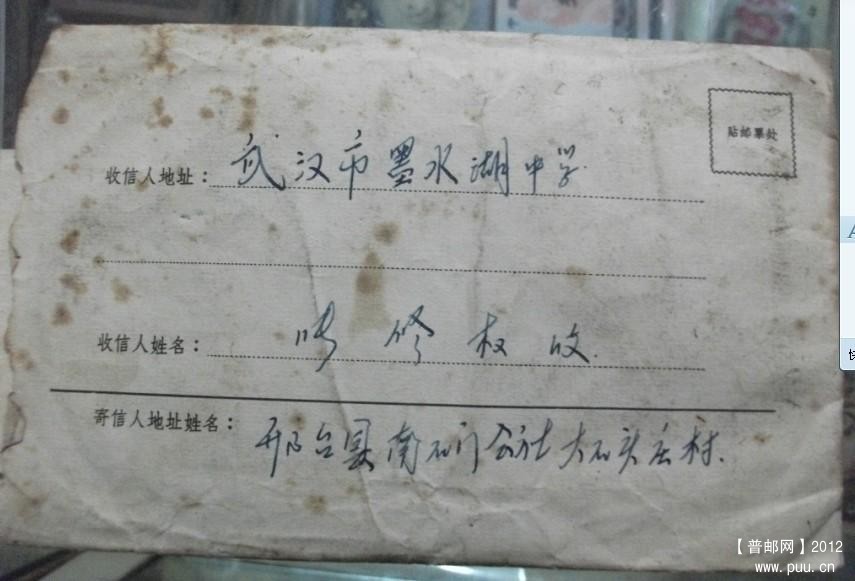 贴邮票处
收信人地址：武汉市墨水湖中学
收信人姓名：修权收.
寄信人地址姓名：邢台县南石门公社大石头庄村.
【普邮网】2012
www.puu.cn